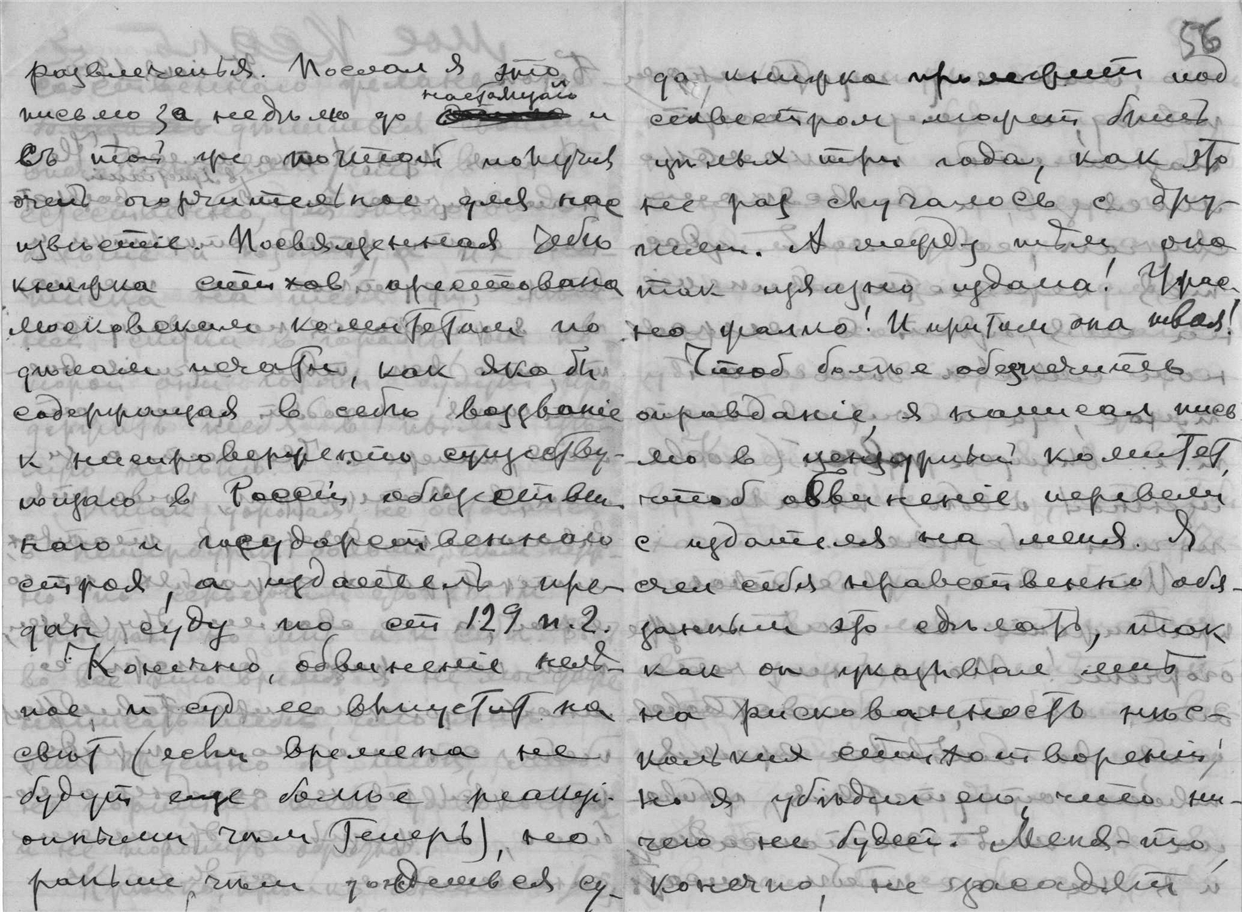 56
развлеченья. Послал я это
настоящаго
письмо за недѣлю до и
съ той же почтой получил
очень огорчительное для нас
извѣстіе. Посвященная Тебѣ
книжка стихов арестована
московским комитетам по
дѣлам печати, как якобы
содержащая в себѣ воззваніе
к ниспровержению существу-
ющаго в Россіи обществен
наго и государственного
строя, а издатель пре-
дан суду по ст 129 п. 2.
Конечно, обвиненіе нелѣ-
пое, и суд ее выпустит на
свѣт (если времена не
будут еще болѣе реакці-
онными чѣм теперь), но
раньше, чѣм дождешься су-
да, книжка пролежит под
секвестром может быть
цѣлых три года, как это
не раз случалось с дру-
гими. А между тѣм она
так изящно издана! Ужас-
но жалко! И притом она твоя!
Чтоб больше обезпечить
оправданіе, я написал пись
мо в цензурный комитет,
чтоб обвиненіе перевели
с издателя на меня. Я
счел себя нравственно обя-
занным это сдѣлать, так
как он указывал мнѣ
на рискованность нѣс-
колькия стихотвореній,
но я убѣдил его, что ни-
чего не будет. Меня-то,
конечно, не засадят и